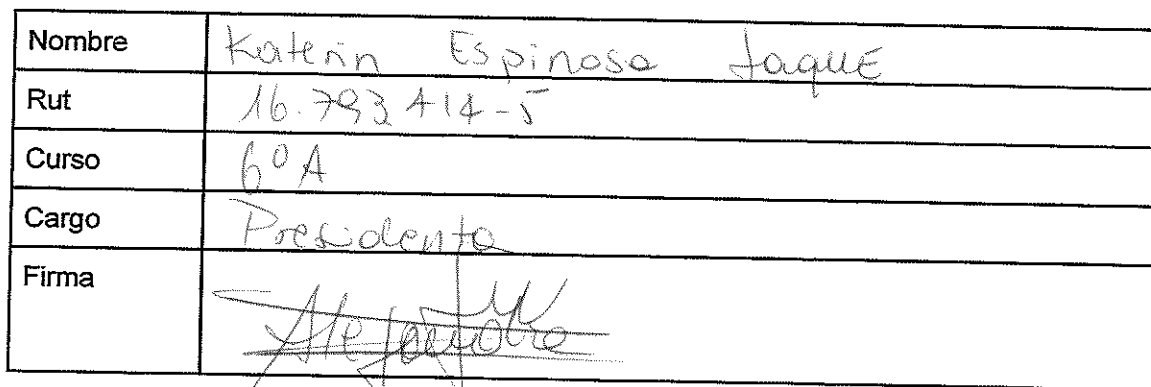 Nombre Katerin Espinosa Jaque
Rut 16.793 414-5
Curso 6º A
Cargo Presidenta
Firma Alejandra